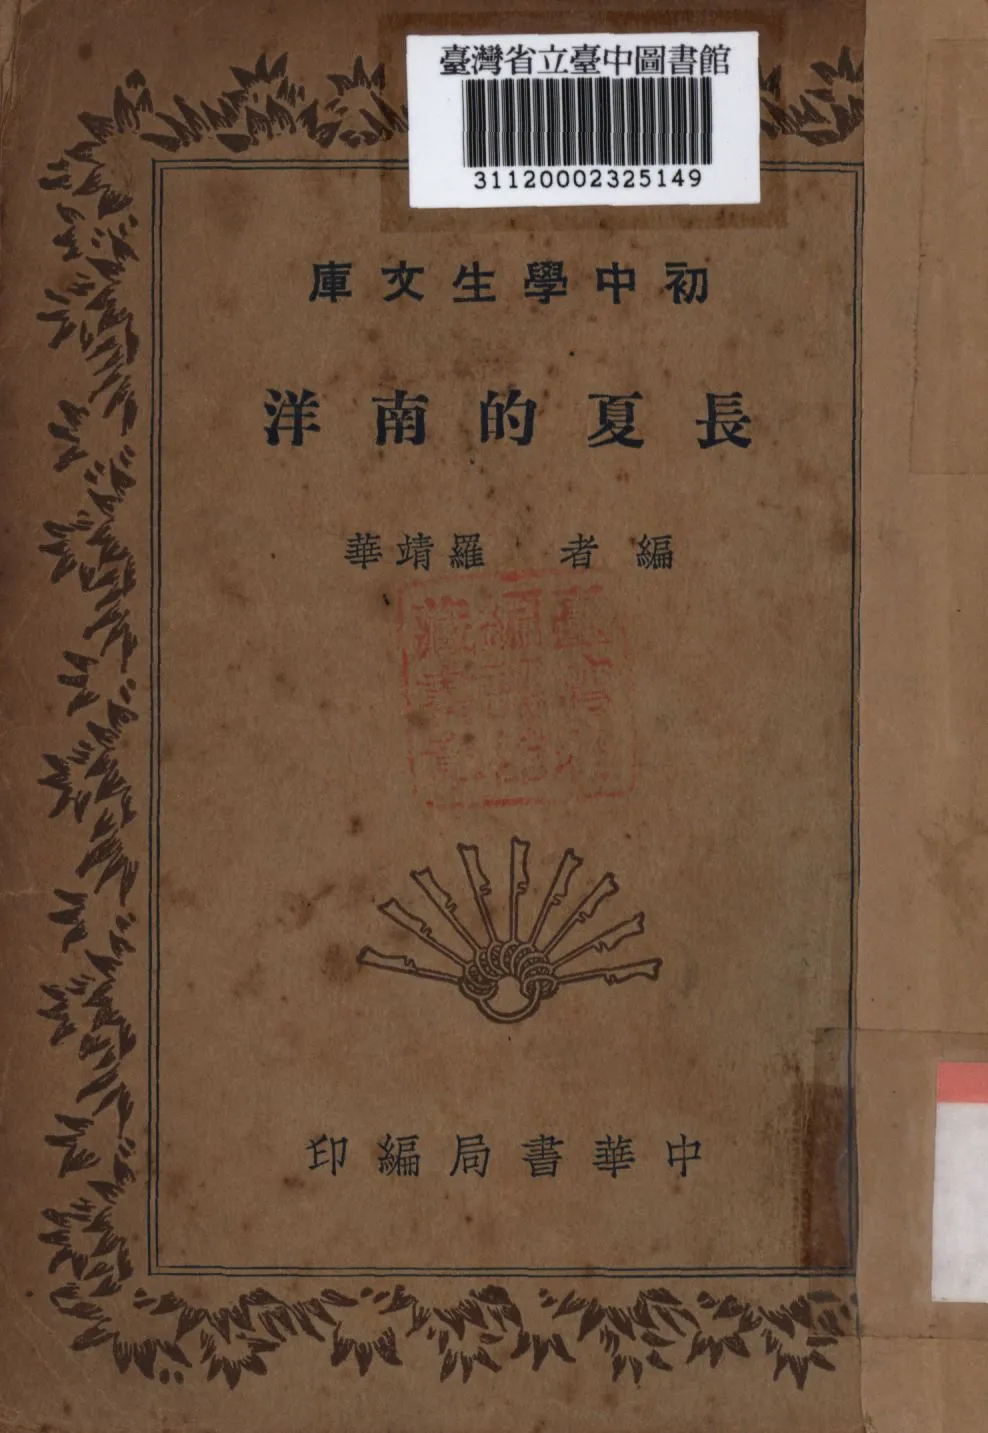 臺灣省立臺中圖書館
31120002325149
初中學生文庫
長夏的南洋
編者 羅靖華
中華書局編印